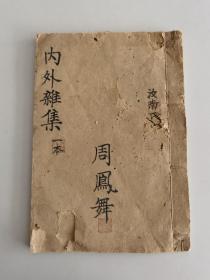 汝南
周鳳舞
內外雜集
一本